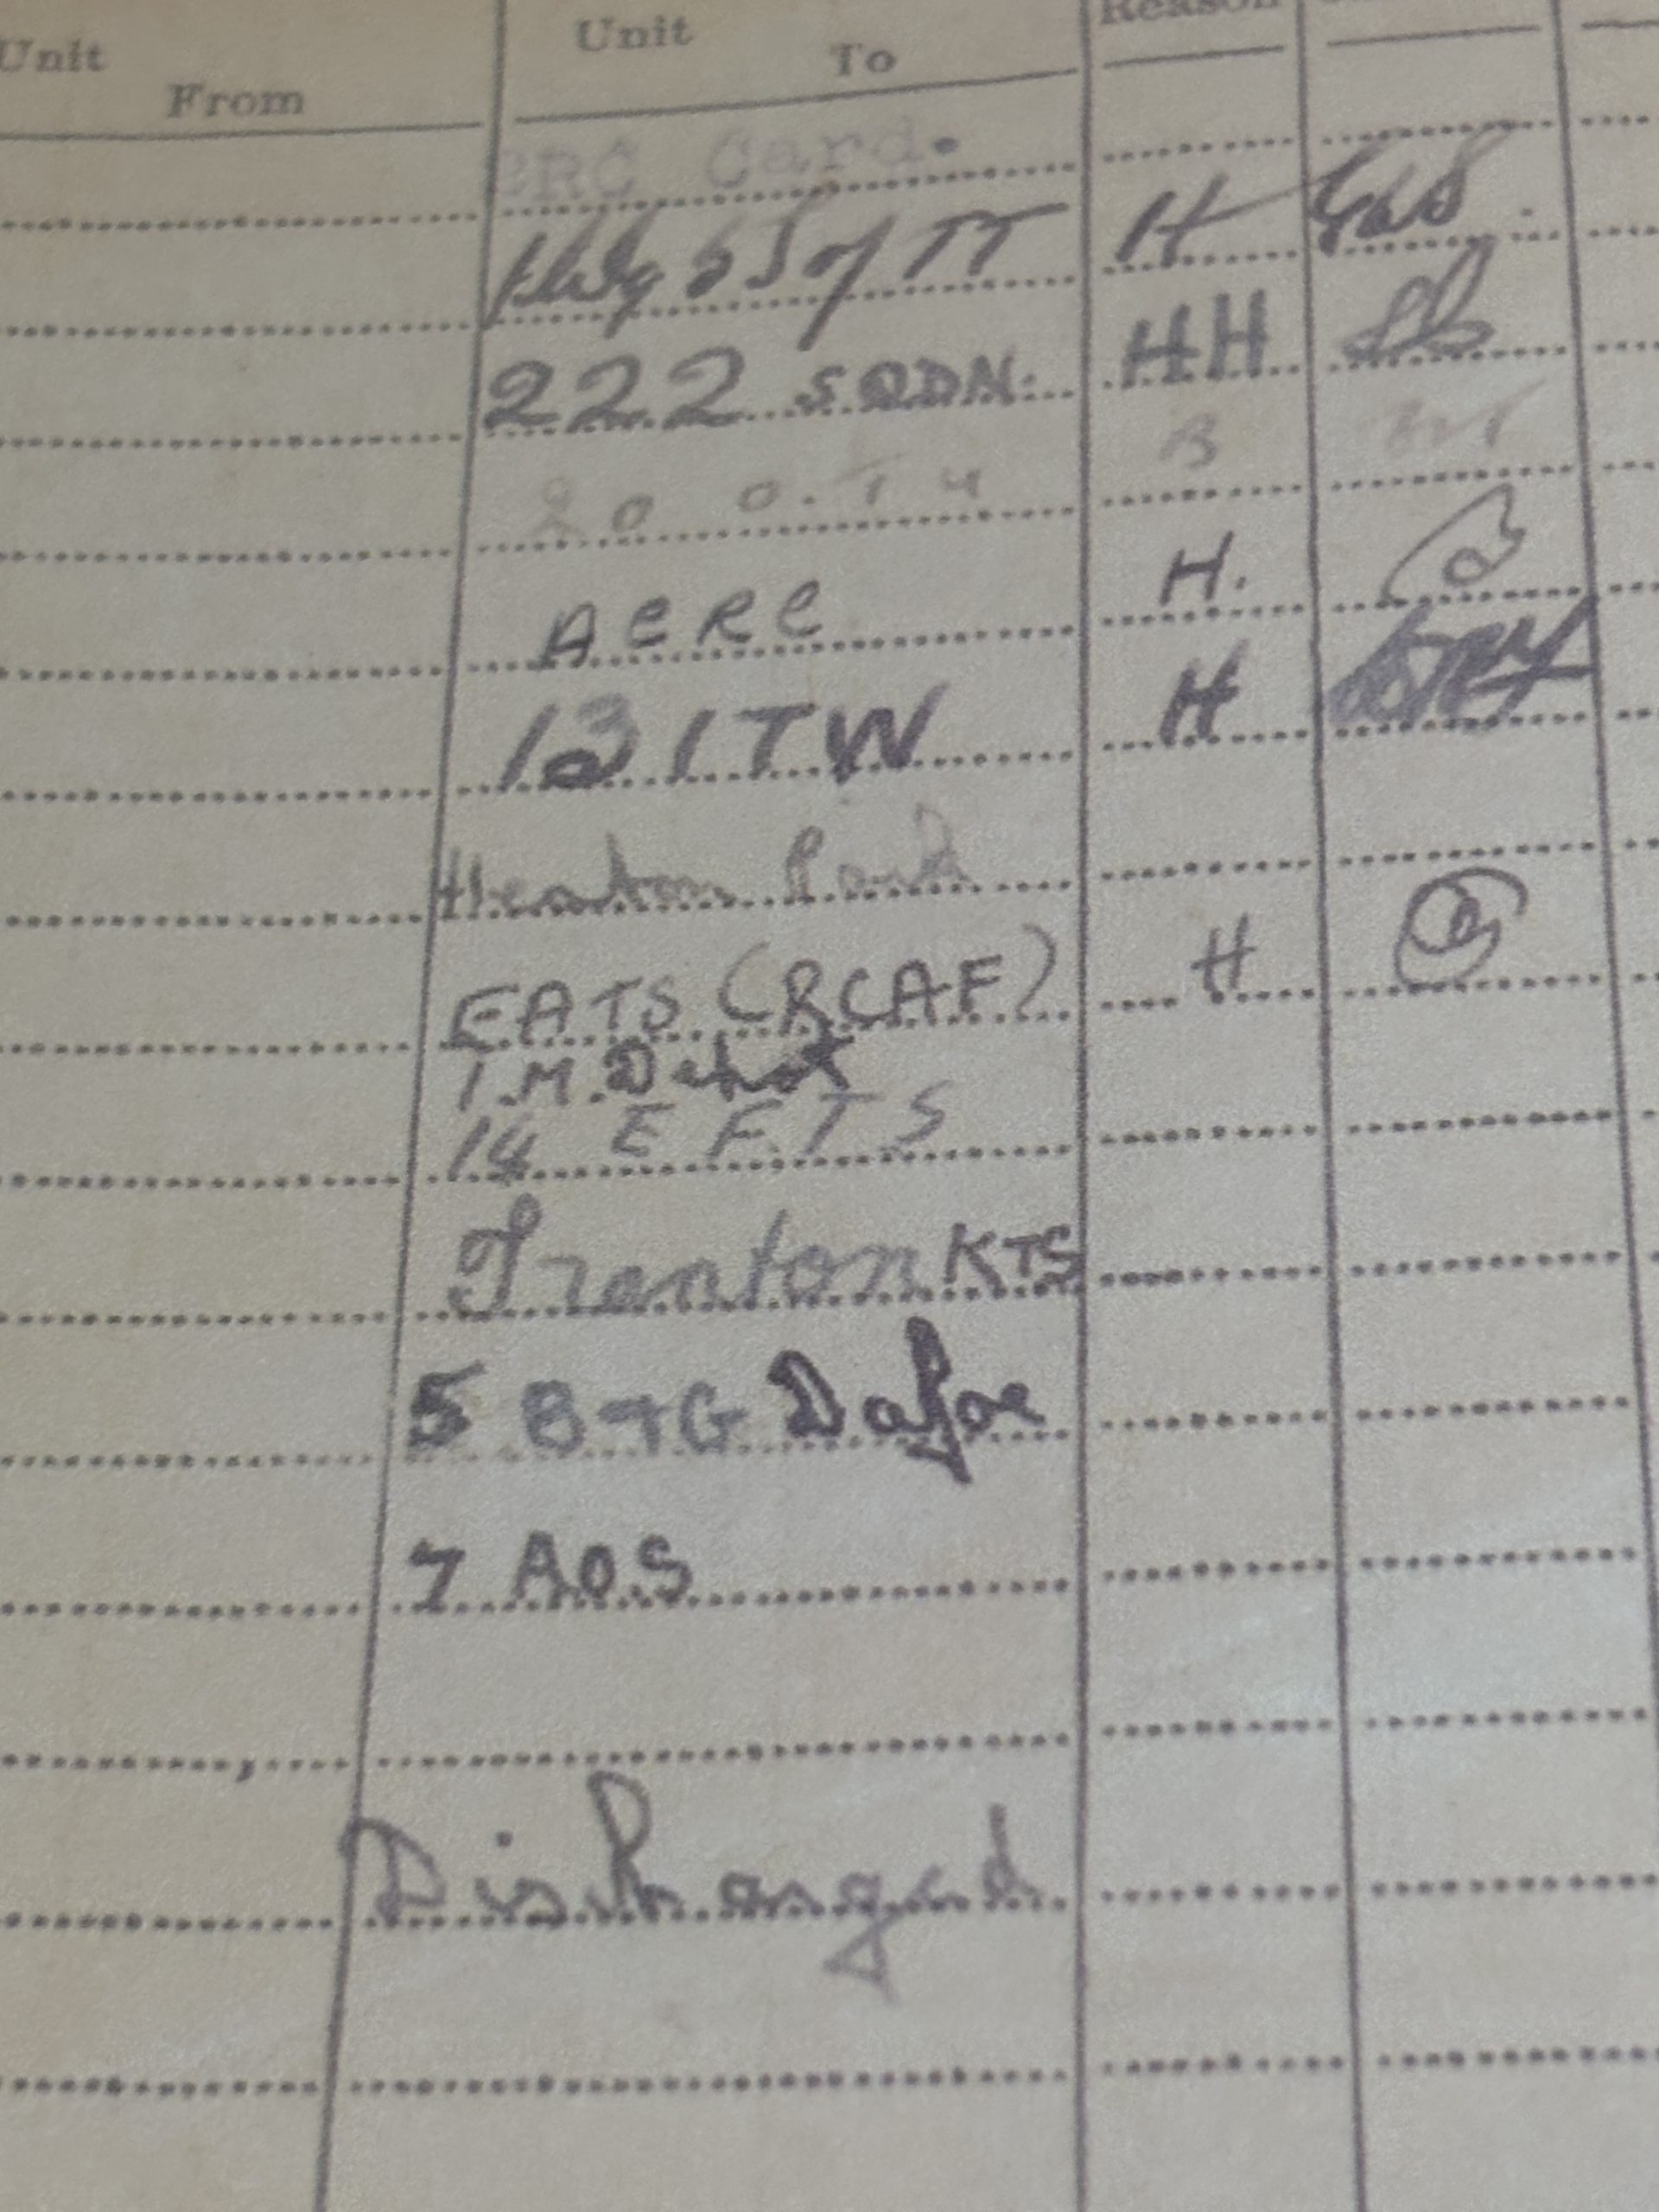 Unit From Unit To Reason
ERC Card.
6 S of TT H
222 SQDN. HH
20 O.T.U B
ACRC H.
13 ITW H
Heaton Park
EATS (RCAF) H
1.M.Depot
14 E F.T.S
Trenton KTS
5 B+G Dafoe
7 A.O.S
Discharged